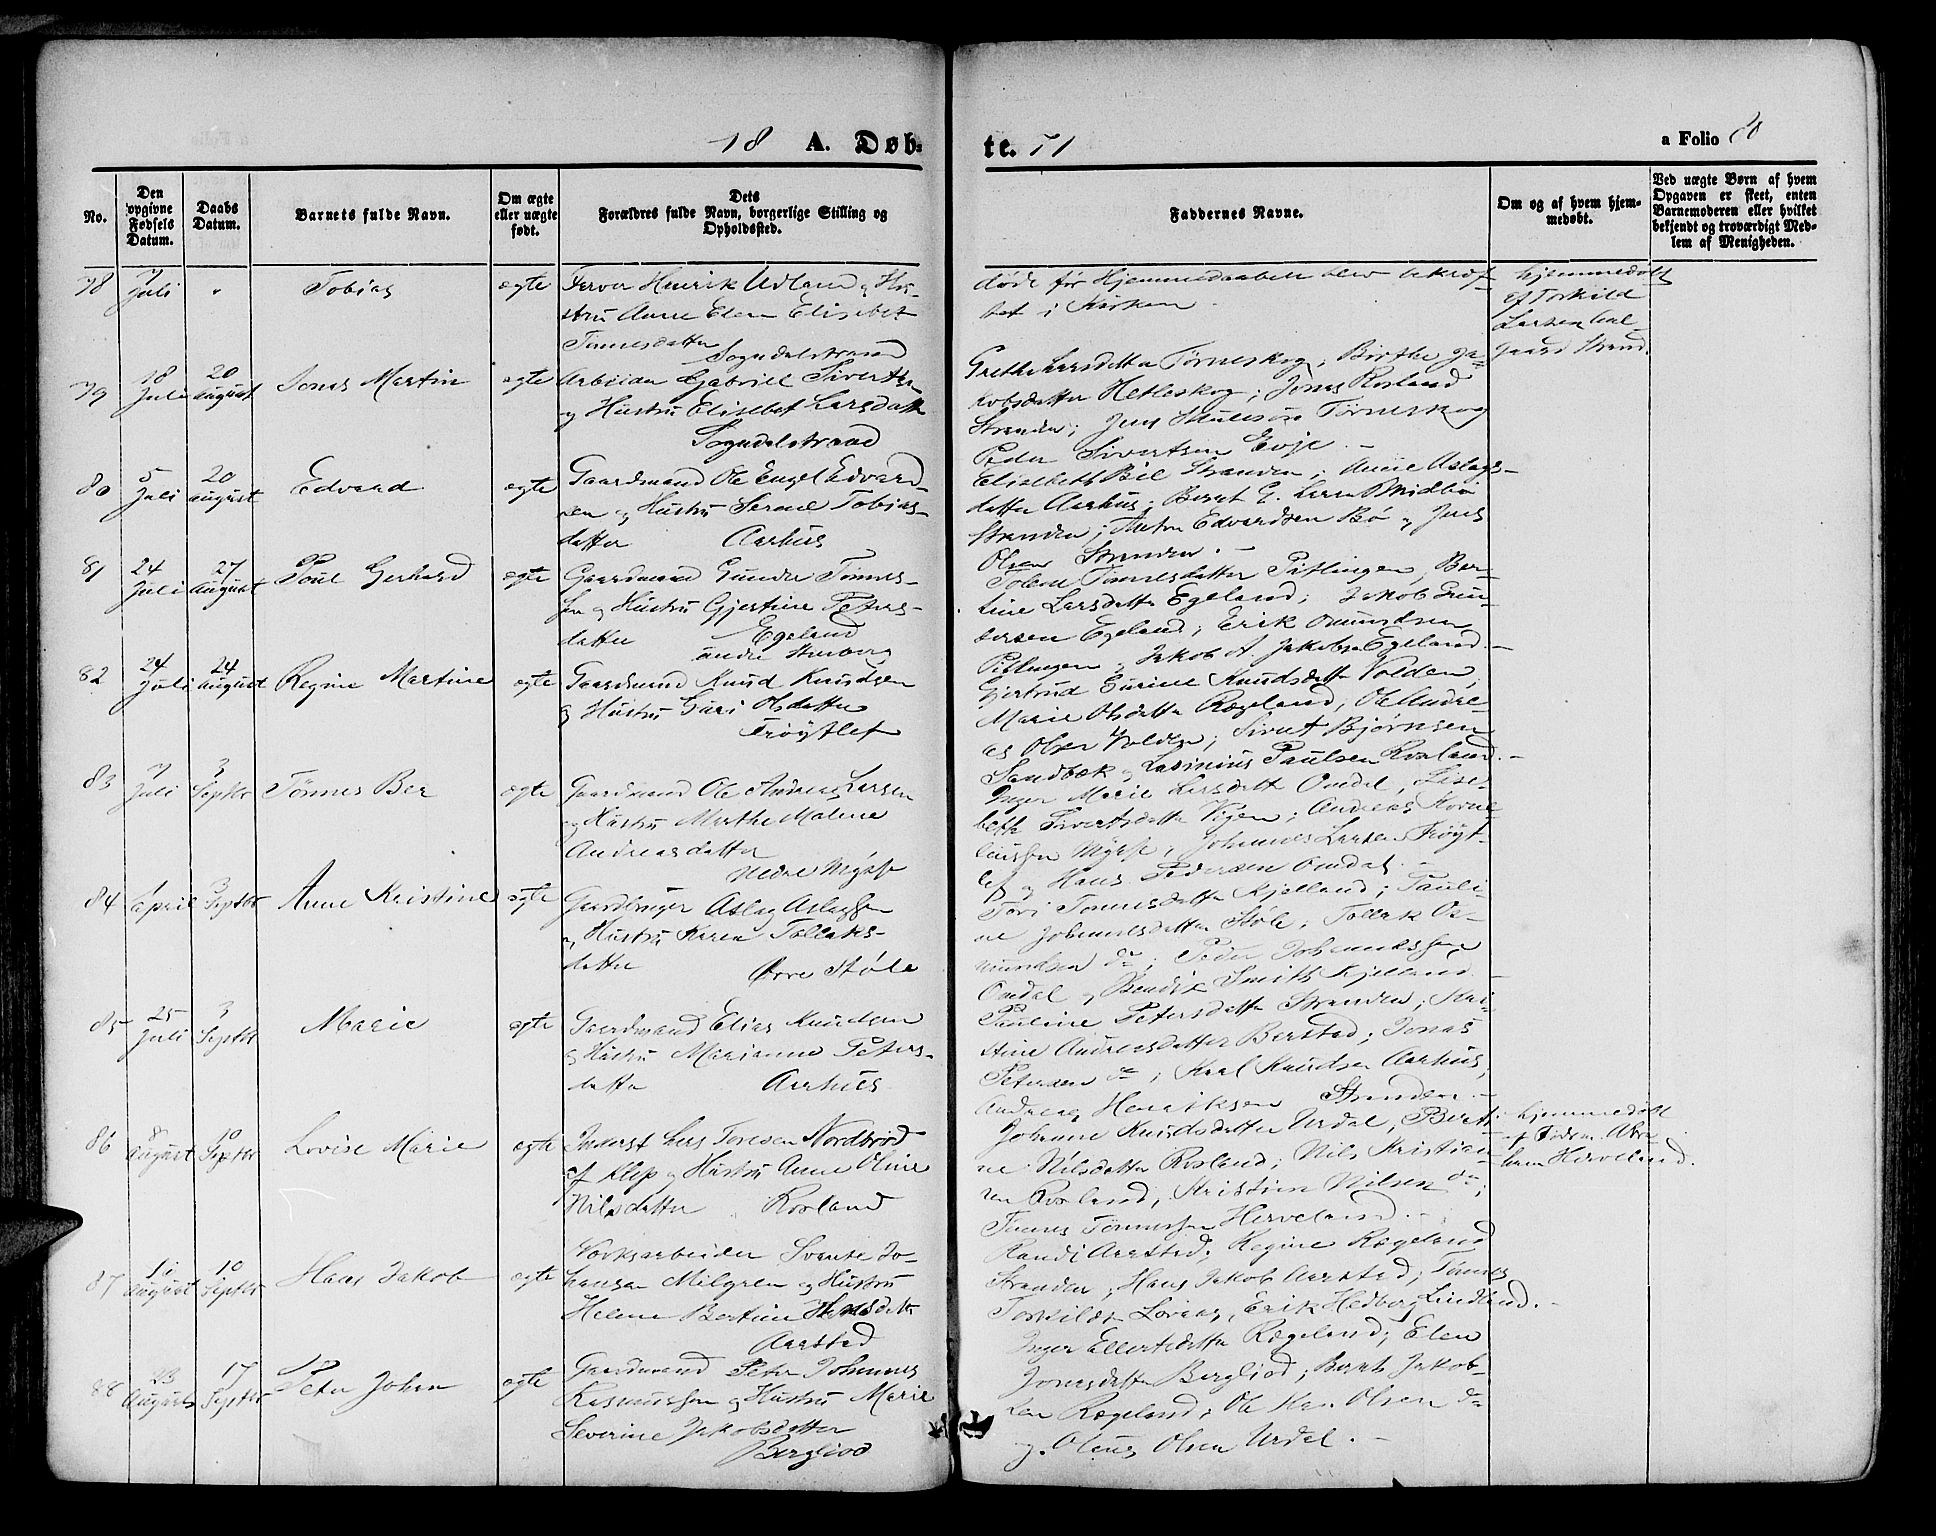 18 A. Døb-
te. 71
a Folio
No.
Den opgivne Fødsels Datum.
Daabs Datum.
Barnets fulde Navn.
Om ægte eller uægte født.
Dets Forældres fulde Navn, borgerlige Stilling og Opholdssted.
Faddernes Navne.
Om og af hvem hjem-
medøbt.
Ved uægte Børn af hvem
Opgaven er skeet, enten
Barnemoderen eller hvilket
bekjendt og troværdigt Med-
lem af Menigheden.
78 7 Juli Tobias ægte
Farver Henrik Udland og Hu-
stru Anne Elen Elisebet
Tønnesdatter
Sogndalstrand
døde før Hjemmedaaben blev bekræf-
tet i Kirken.
hjemmedøbt
af Torkild
Larsen
Strand.
79 18 Juli 20 August Jonas Martin ægte
Arbeider Gabriel Sivertsen
og Hustru Elisebet Larsdatter
Sogndalstrand
Grethe Larsdatter Tørneskog; Birthe Ja-
kobsdatter Hetleskog; Jonas Rosland
Stranden; Jens Tørneskog
Peder Sivertsen Evje. –
80 5 Juli 20 August Edvard ægte
Gaardmand Ole Engel Edvard-
sen og Hustru Serene Tobias-
datter Aarhus
Elisebeth Bøe Stranden; Anne Aslags-
datter Aarhus; Bernt G. Midbø
Stranden; Anton Edvardsen Bø og Jens
Olsen Stranden. –
81 24 Juli 27 August Poul Gerhard ægte
Gaardmand Gunder Tønnes-
sen og Hustru Gjertine Peters-
datter Egeland
Tønnesdatter Pitlingen; Ber-
tine Larsdatter Egeland; Jakob Gun-
dersen Egeland; Erik Omundsen
Pitlingen og Jakob A. Jakobsen Egeland. –
82 24 Juli 24 August Regine Martine ægte
Gaardmand Knud Knudsen
og Hustru Guri Olsdatter
Frøytlef
Gjertrud Gurine Knudsdatter Volden;
Marie Olsdatter Rægeland; Ole Andre-
as Olsen Volden; Sivert Bjørnsen
Sandbæk og Paulsen Rosland. –
83 7 Juli 3 Septbr Tønnes Ber ægte
Gaardmand Ole Andreas Larsen
og Hustru Marthe Malene
Andreasdatter
Nedre Mysse
Inger Marie Larsdatter Omdal; Lise-
beth Sivertsdatter Vigen; Andreas
Mysse; Johannes Larsen Frøyt-
lef og Hans Pedersen Omdal. –
84 April 3 Septbr Anne Kristine ægte
Gaardbruger Aslag Aslagsen
og Hustru Karen Tollaks-
datter Øvre Støle
Tori Tønnesdatter Kjelland; Pauli-
ne Johannesdatter Støle; Tollak Os-
mundsen do; Peder Johannessen
Omdal og Bendix Smith Kjelland –
85 25 Juli 3 Septbr Marie ægte
Gaardmand Elias Knudsen
og Hustru Marianne Peters-
datter Aarhus
Pauline Petersdatter Stranden; Kri-
stine Andreasdatter Berstad; Jonas
Petersen do; Karl Knudsen Aarhus;
Andreas Henriksen Stranden. –
86 8 August 10 Septbr Lovise Marie ægte
Inderst Lars Toresen Nordbrød
af Klep og Hustru Anne Oline
Nilsdatter Rosland
Johanne Knudsdatter Urdal; Berti-
ne Nilsdatter Rosland; Nils Kristian-
sen Rosland; Kristian Nilsen do;
Tønnes Tønnessen Herveland. –
hjemmedøbt
af Abra-
ham Herveland.
87 August 10 Septbr Hans Jakob ægte
Værksarbeider Svante Jo-
hansen Milgren og Hustru
Helene Bertine Hansdatter
Aarstad
Randi Aarstad; Regine Rægeland
Stranden; Hans Jakob Aarstad; Tønnes
Torkildsen; Erik Hedberg Lindland. –
88 23 August 17 Septbr Peter Johan ægte
Gaardmand Peter Johannes
Rasmussen og Hustru Marie
Severine Jakobsdatter
Bergliod
Inger Ellertsdatter Rægeland; Elen
Jonasdatter Bergliod; Bernt Jakob-
sen Rægeland; Ole Olsen do
og Olaus Olsen Urdal. –